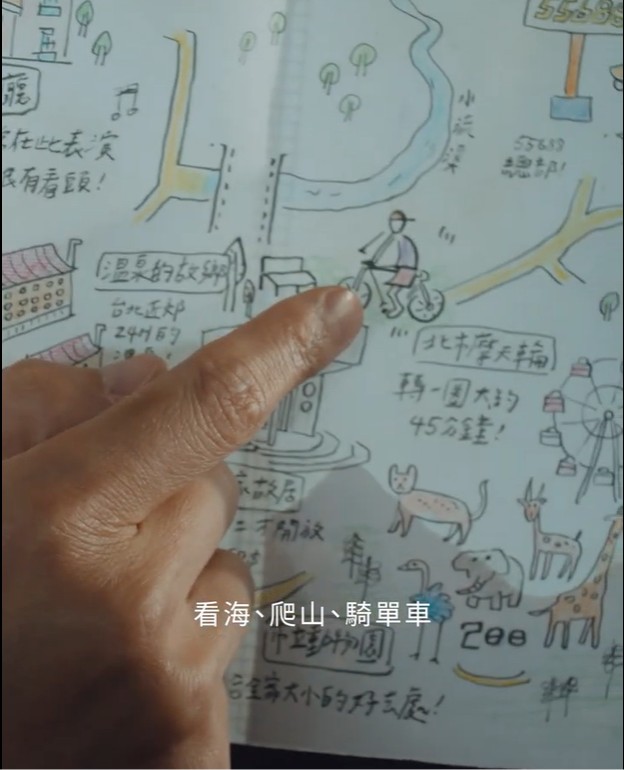 55688
廳
在此表演
很有看頭!
小
溪
55688
總部!
溫泉的故鄉
台北近郊
24H的
北市摩天輪
轉一圈大約
45分鐘!
家故居
才開放
看海、爬山、騎單車
市立動物園
zoo
合全家大小的好去處!